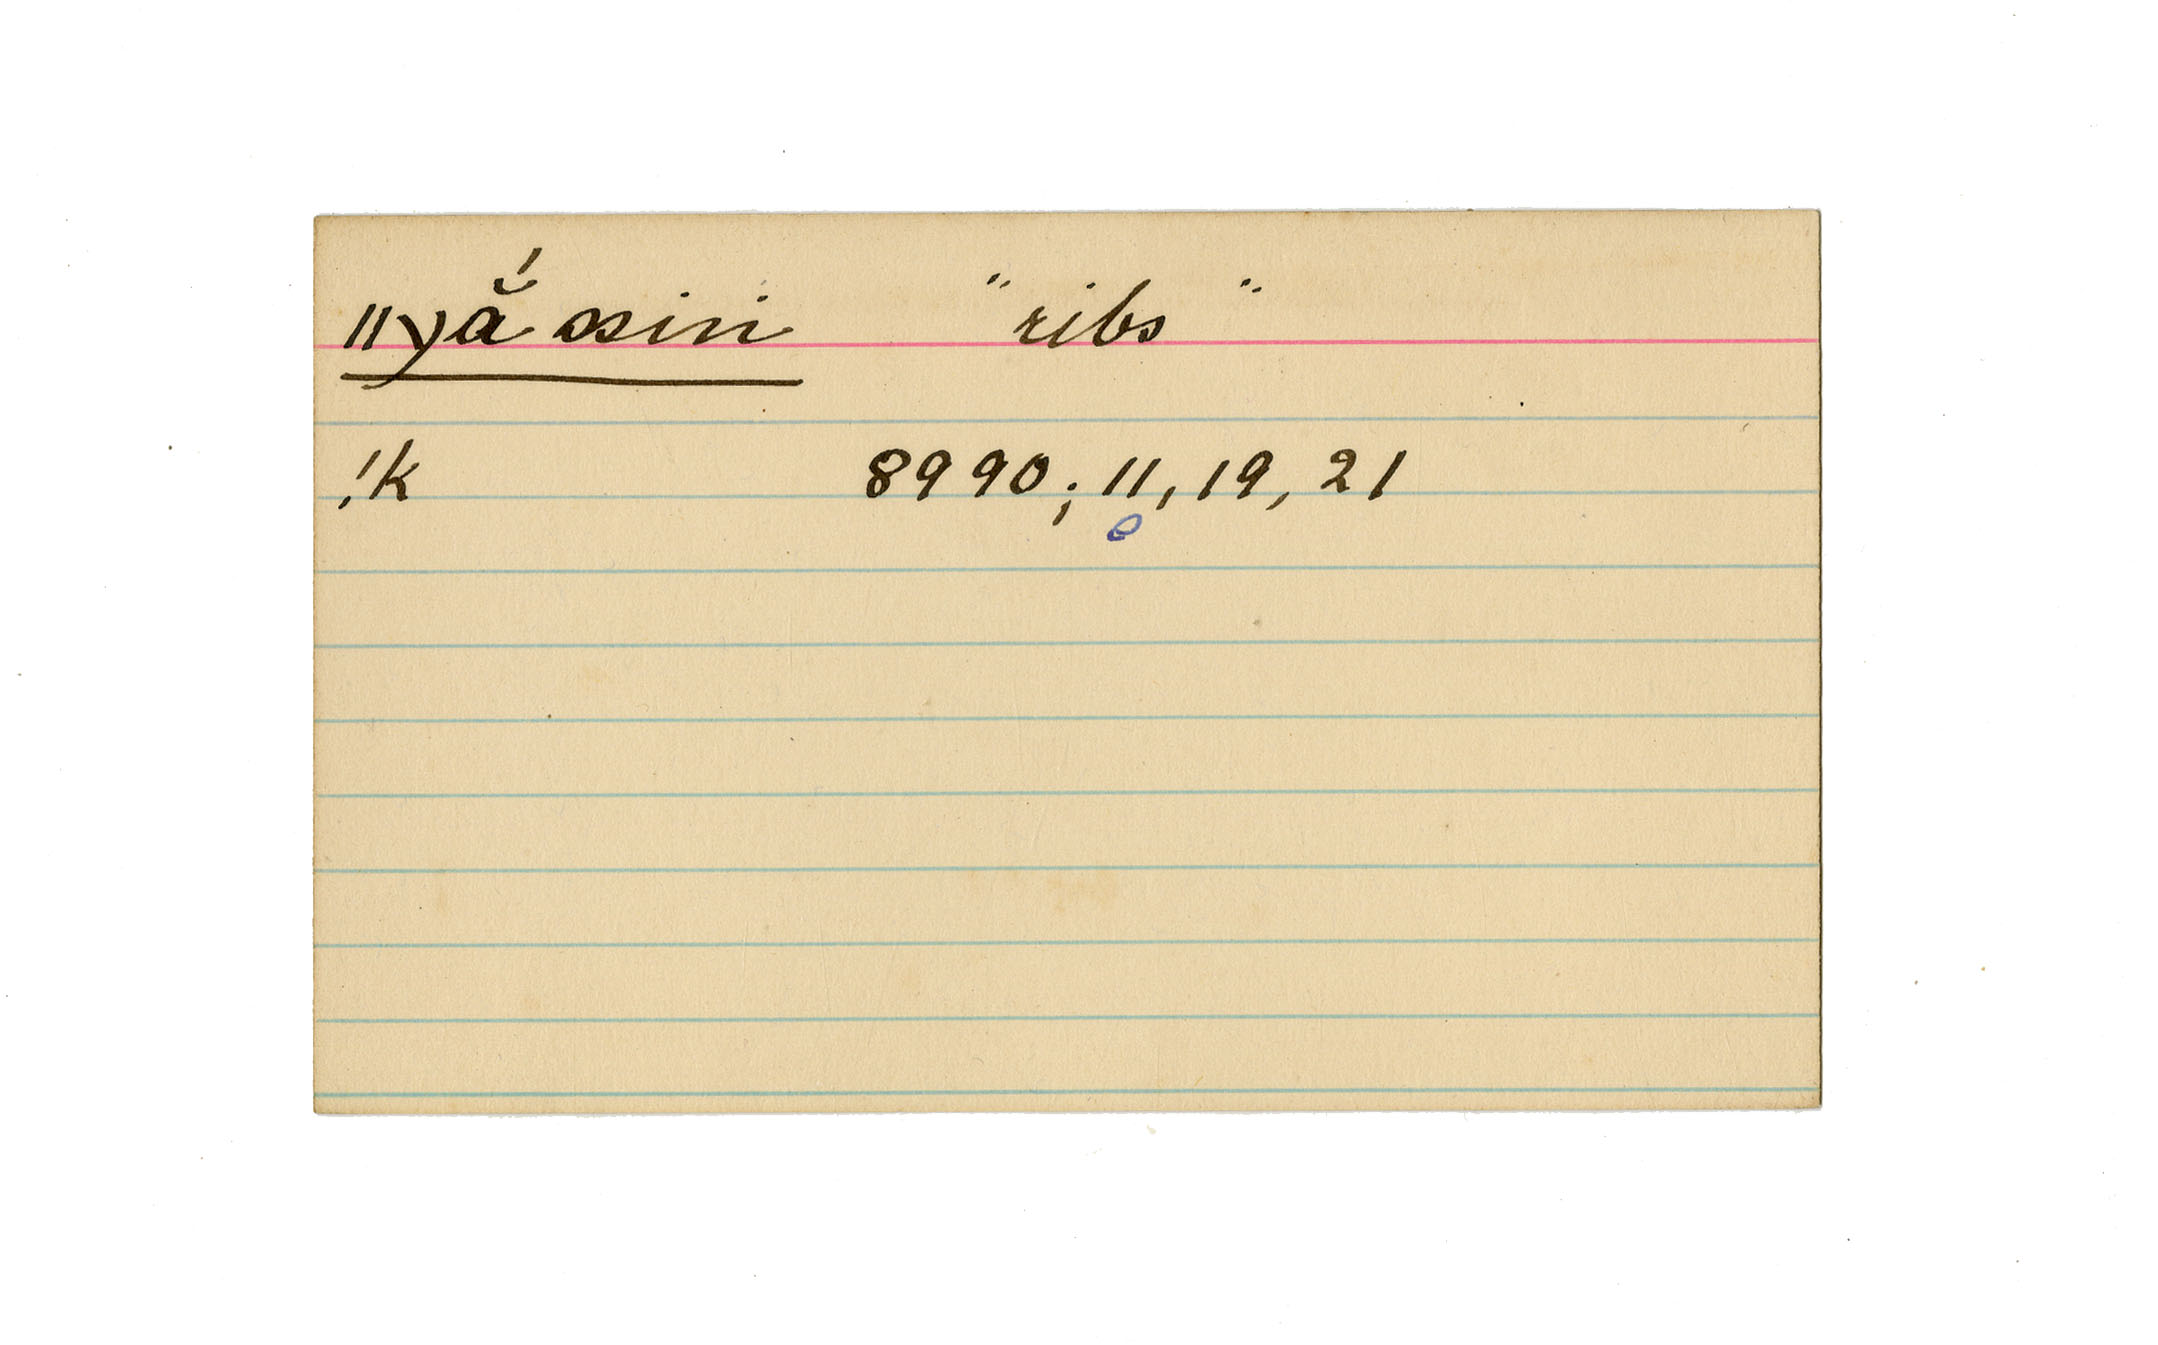 ǁyắ ssin "ribs"
!k 8990; 11, 19, 21